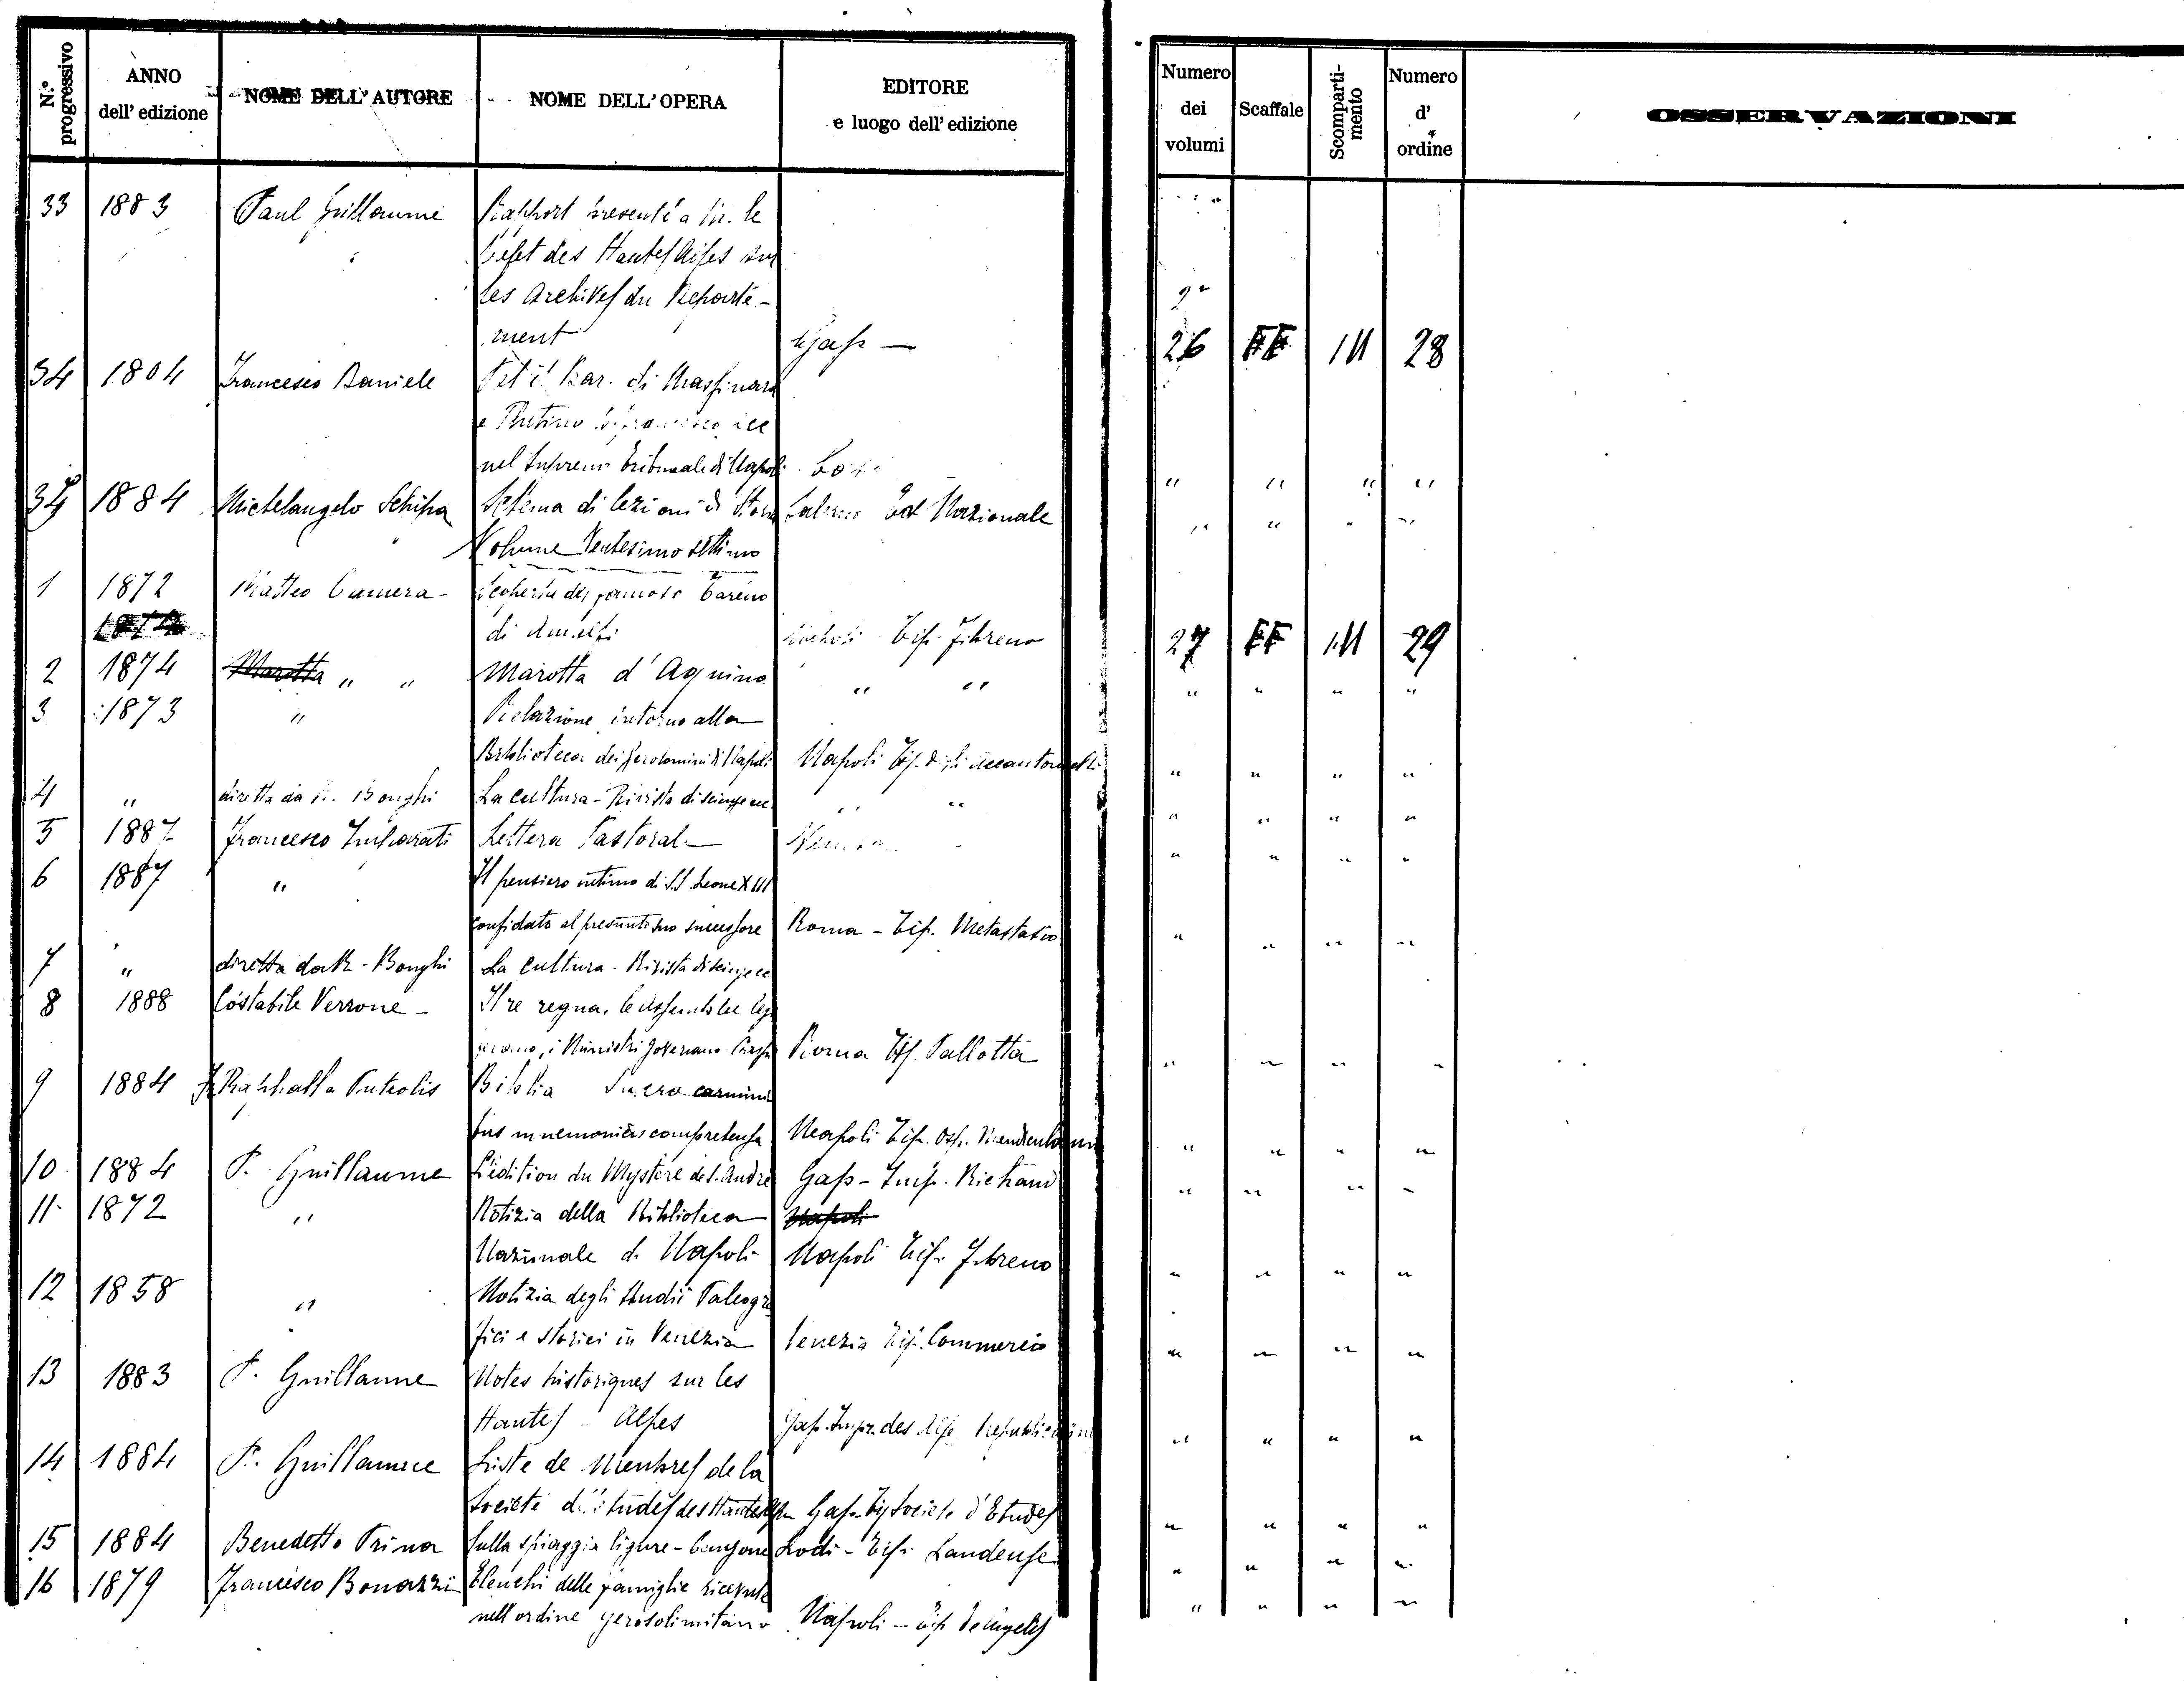 N.° progressivo
ANNO dell' edizione
NOME DELL' AUTORE
NOME DELL' OPERA
EDITORE e luogo dell' edizione
Numero dei volumi
Scaffale
Scomparti-mento
Numero d' ordine
OSSERVAZIONI
33 1883 Paul Guillaume Rapport presenté a Mr. le
des Hautes Alpes sur
les Archives du Departe-
ment Gap — 26 FF III 28
34 1804 Francesco Daniele
e Rutino
nel Supremo Tribunale di Napoli
34 1884 Michelangelo Schipa Schema di lezioni di Storia Salerno Nazionale " " " "
Volume Ventesimo settimo " " " "
1 1872 Matteo Camera - Scoperta del famoso Tareno
di Amalfi Napoli Tip. Fibreno 27 FF III 29
2 1874 " " Marotta d'Aquino " " " " " "
3 1873 " Relazione intorno alla
Biblioteca dei Gerolomini di Napoli Napoli Tip. degli Accattoncelli " " " "
4 " diretta da R. Bonghi La cultura - Rivista di scienze ecc " " " " " "
5 1887 Francesco Imparati Lettera Pastorale " " " "
6 1887 " Il pensiero intimo di S.S. Leone XIII
confidato al presunto suo successore Roma - Tip. Metastasio " " " "
7 " diretta da R. Bonghi La Cultura - Rivista di scienze ecc
8 1888 Costabile Verrone - Il re regna, le Assemblee
i Ministri governano Roma Tip. Pallotta " " " "
9 1884 Raphaela Puteolis Biblia Sacra carmini
bus mnemonicis comprehensa Neapoli Tip. " " " "
10 1884 P. Guillaume L'edition du Mystère de S. André Gap - Imp. Richaud " " " "
11 1872 " Notizia della Biblioteca
Nazionale di Napoli Napoli Tip. Fibreno " " " "
12 1858 " Notizia degli Studii Paleogra
fici e storici in Venezia Venezia Tip. Commercio " " " "
13 1883 P. Guillaume Notes historiques sur les
Hautes Alpes Gap. Impr. des Alpes " " " "
14 1884 P. Guillaume Liste de Membres de la
Societe d'études des Hautes Alpes Gap. Tip Societe d'Etudes " " " "
15 1884 Benedetto Prina Sulla spiaggia ligure - Canzone Lodi - Tip. Laudense " " " "
16 1879 Francesco Bonazzi Elenchi delle famiglie ricevute
nell'ordine gerosolimitano Napoli - Tip De Angelis " " " "